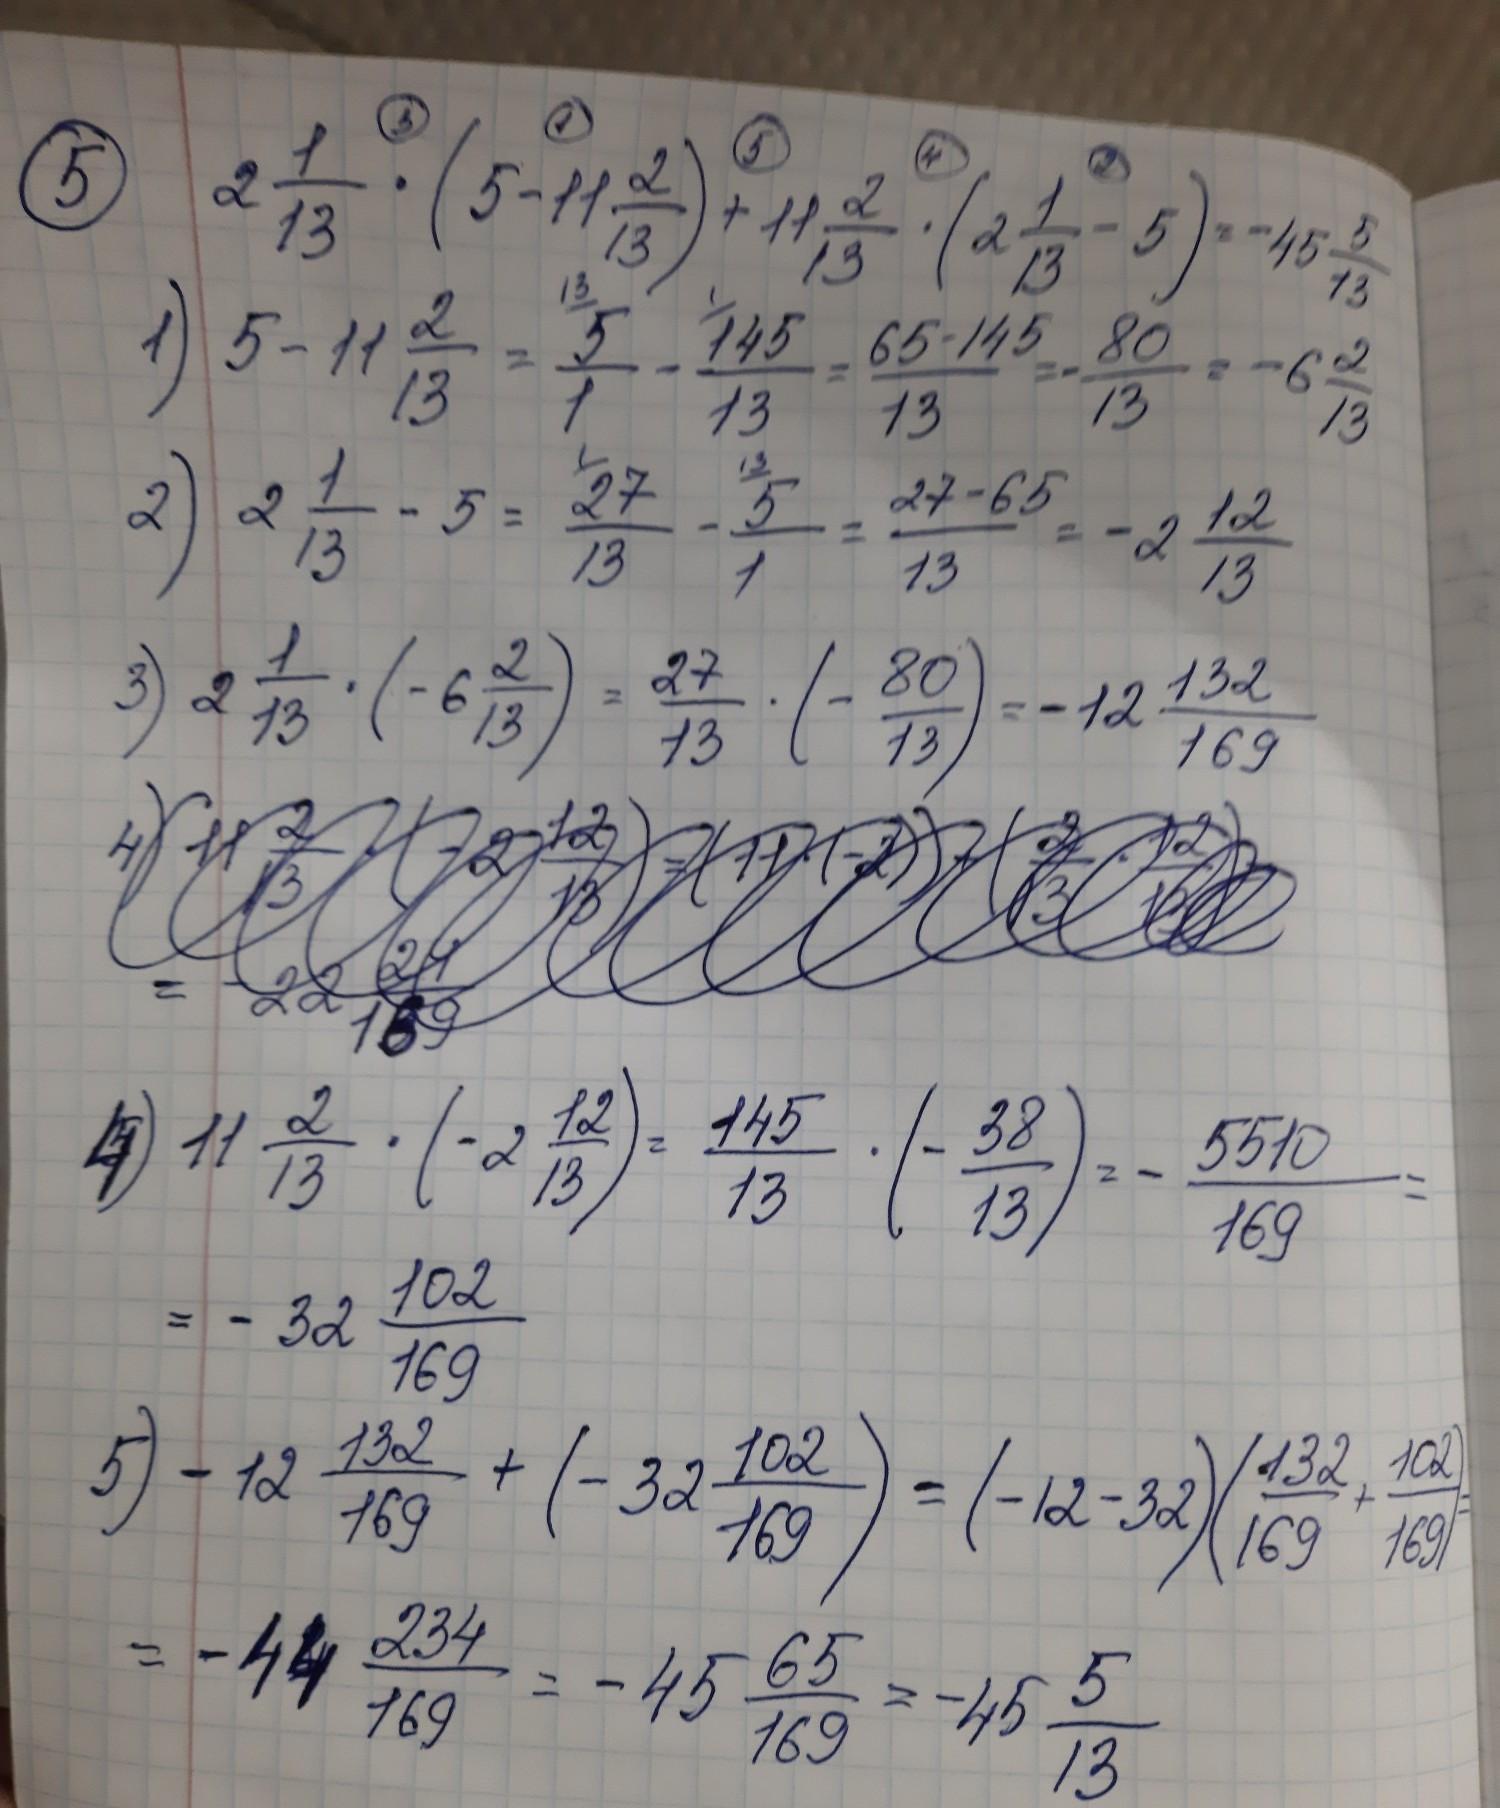 5 2 1/13 · (5 - 11 2/13) + 11 2/13 · (2 1/13 - 5) = -45 5/13
1) 5 - 11 2/13 = 5/1 - 145/13 = 65-145/13 = - 80/13 = -6 2/13
2) 2 1/13 - 5 = 27/13 - 5/1 = 27-65/13 = -2 12/13
3) 2 1/13 · (-6 2/13) = 27/13 · (- 80/13) = -12 132/169
4) 11 2/13 · (-2 12/13) = (11·(-2)) + (2/13 · 12/13)
= -22 24/169
4) 11 2/13 · (-2 12/13) = 145/13 · (- 38/13) = - 5510/169 =
= - 32 102/169
5) - 12 132/169 + (- 32 102/169) = (-12-32)(132/169 + 102/169) =
= -44 234/169 = -45 65/169 = -45 5/13